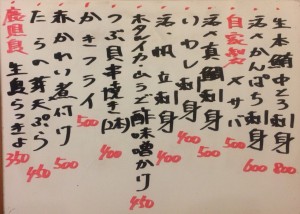 生本鮪中とろ刺身 800
活〆かんぱち刺身 600
自家製〆サバ 500
活〆真鯛刺身 500
いわし刺身 400
活・帆立刺身 400
ホタルイカ・山うど酢味噌かけ 450
つぶ貝串焼き(2本) 400
かきフライ 500
赤かれい煮付け 500
たらの芽天ぷら 450
鹿児島 生島らっきょ 350